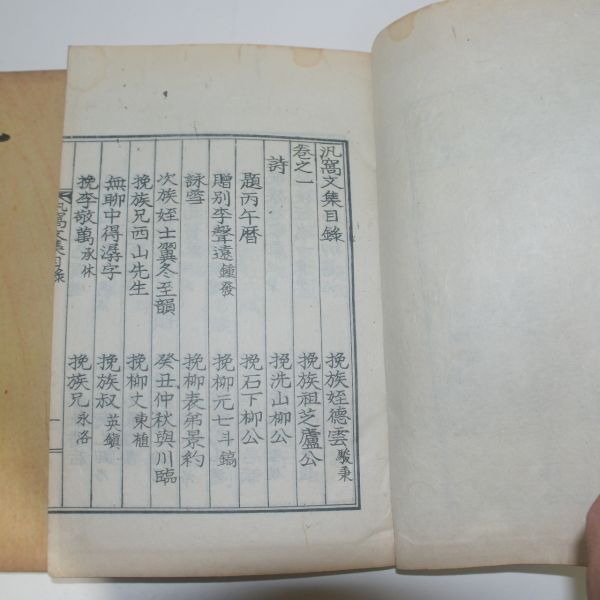 汎窩文集目錄
挽族姪德雲 駿秉
卷之一
挽族祖芝蘆公
詩
挽洗山柳公
題丙午曆
挽石下柳公
贈別李聲遠 鍾發
挽柳元七 斗鎬
詠雪
挽柳表弟景約
次族姪士翼冬至韻
癸丑仲秋與川臨
挽族兄西山先生
挽柳丈 東植
無聊中得潺字
挽族叔 英鎭
挽李敬萬 承休
挽族兄 永洛
汎窩文集目錄
一